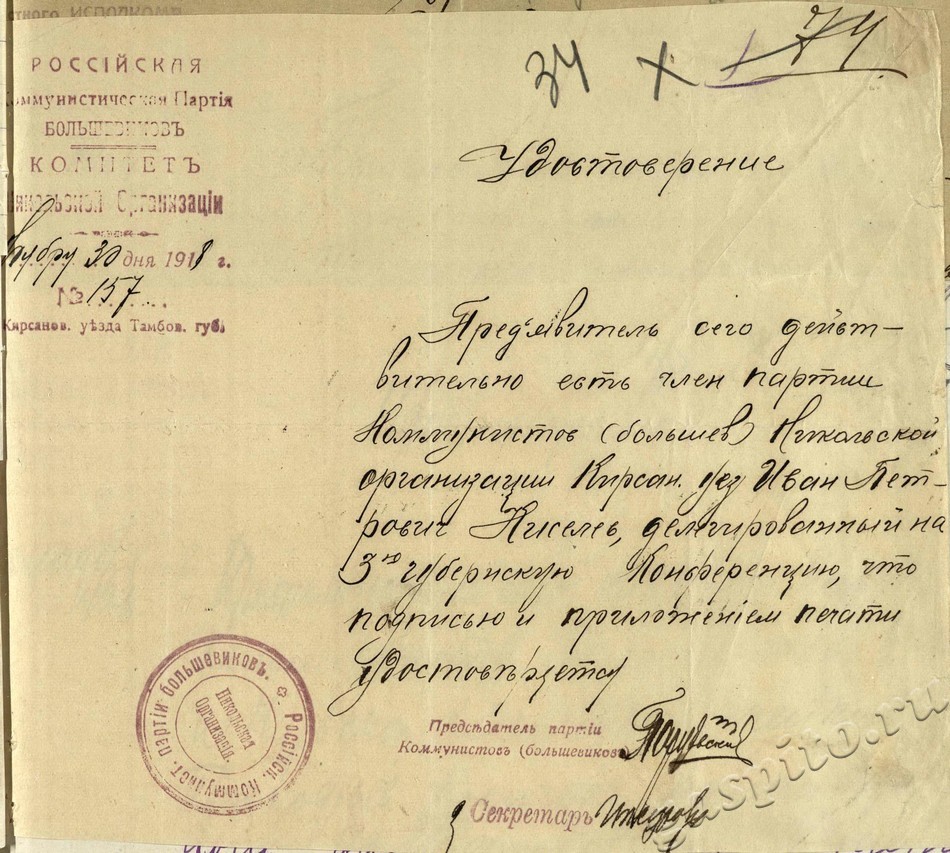 стного ИСПОЛКОМА
34 X 74
РОССІЙСКАЯ
Коммунистическая Партія
БОЛЬШЕВИКОВЪ
КОМИТЕТЪ
Никольской Организаціи
30 дня 1918 г.
№ 157
Кирсанов. уѣзда Тамбов. губ.
Удостоверение
Пред'явитель сего дейст-
вительно есть член партии
Коммунистов (большев) Никольской
организации Кирсан. уез Иван Пет-
рович Киселев, делегированный на
3ю губернскую Конференцию, что
подписью и приложением печати
удостоверяется
Предсѣдатель партіи
Коммунистов (большевиков
Секретарь
Россійск. Коммунист. партіи большевиков.
Никольская
Организація.
gaspito.ru